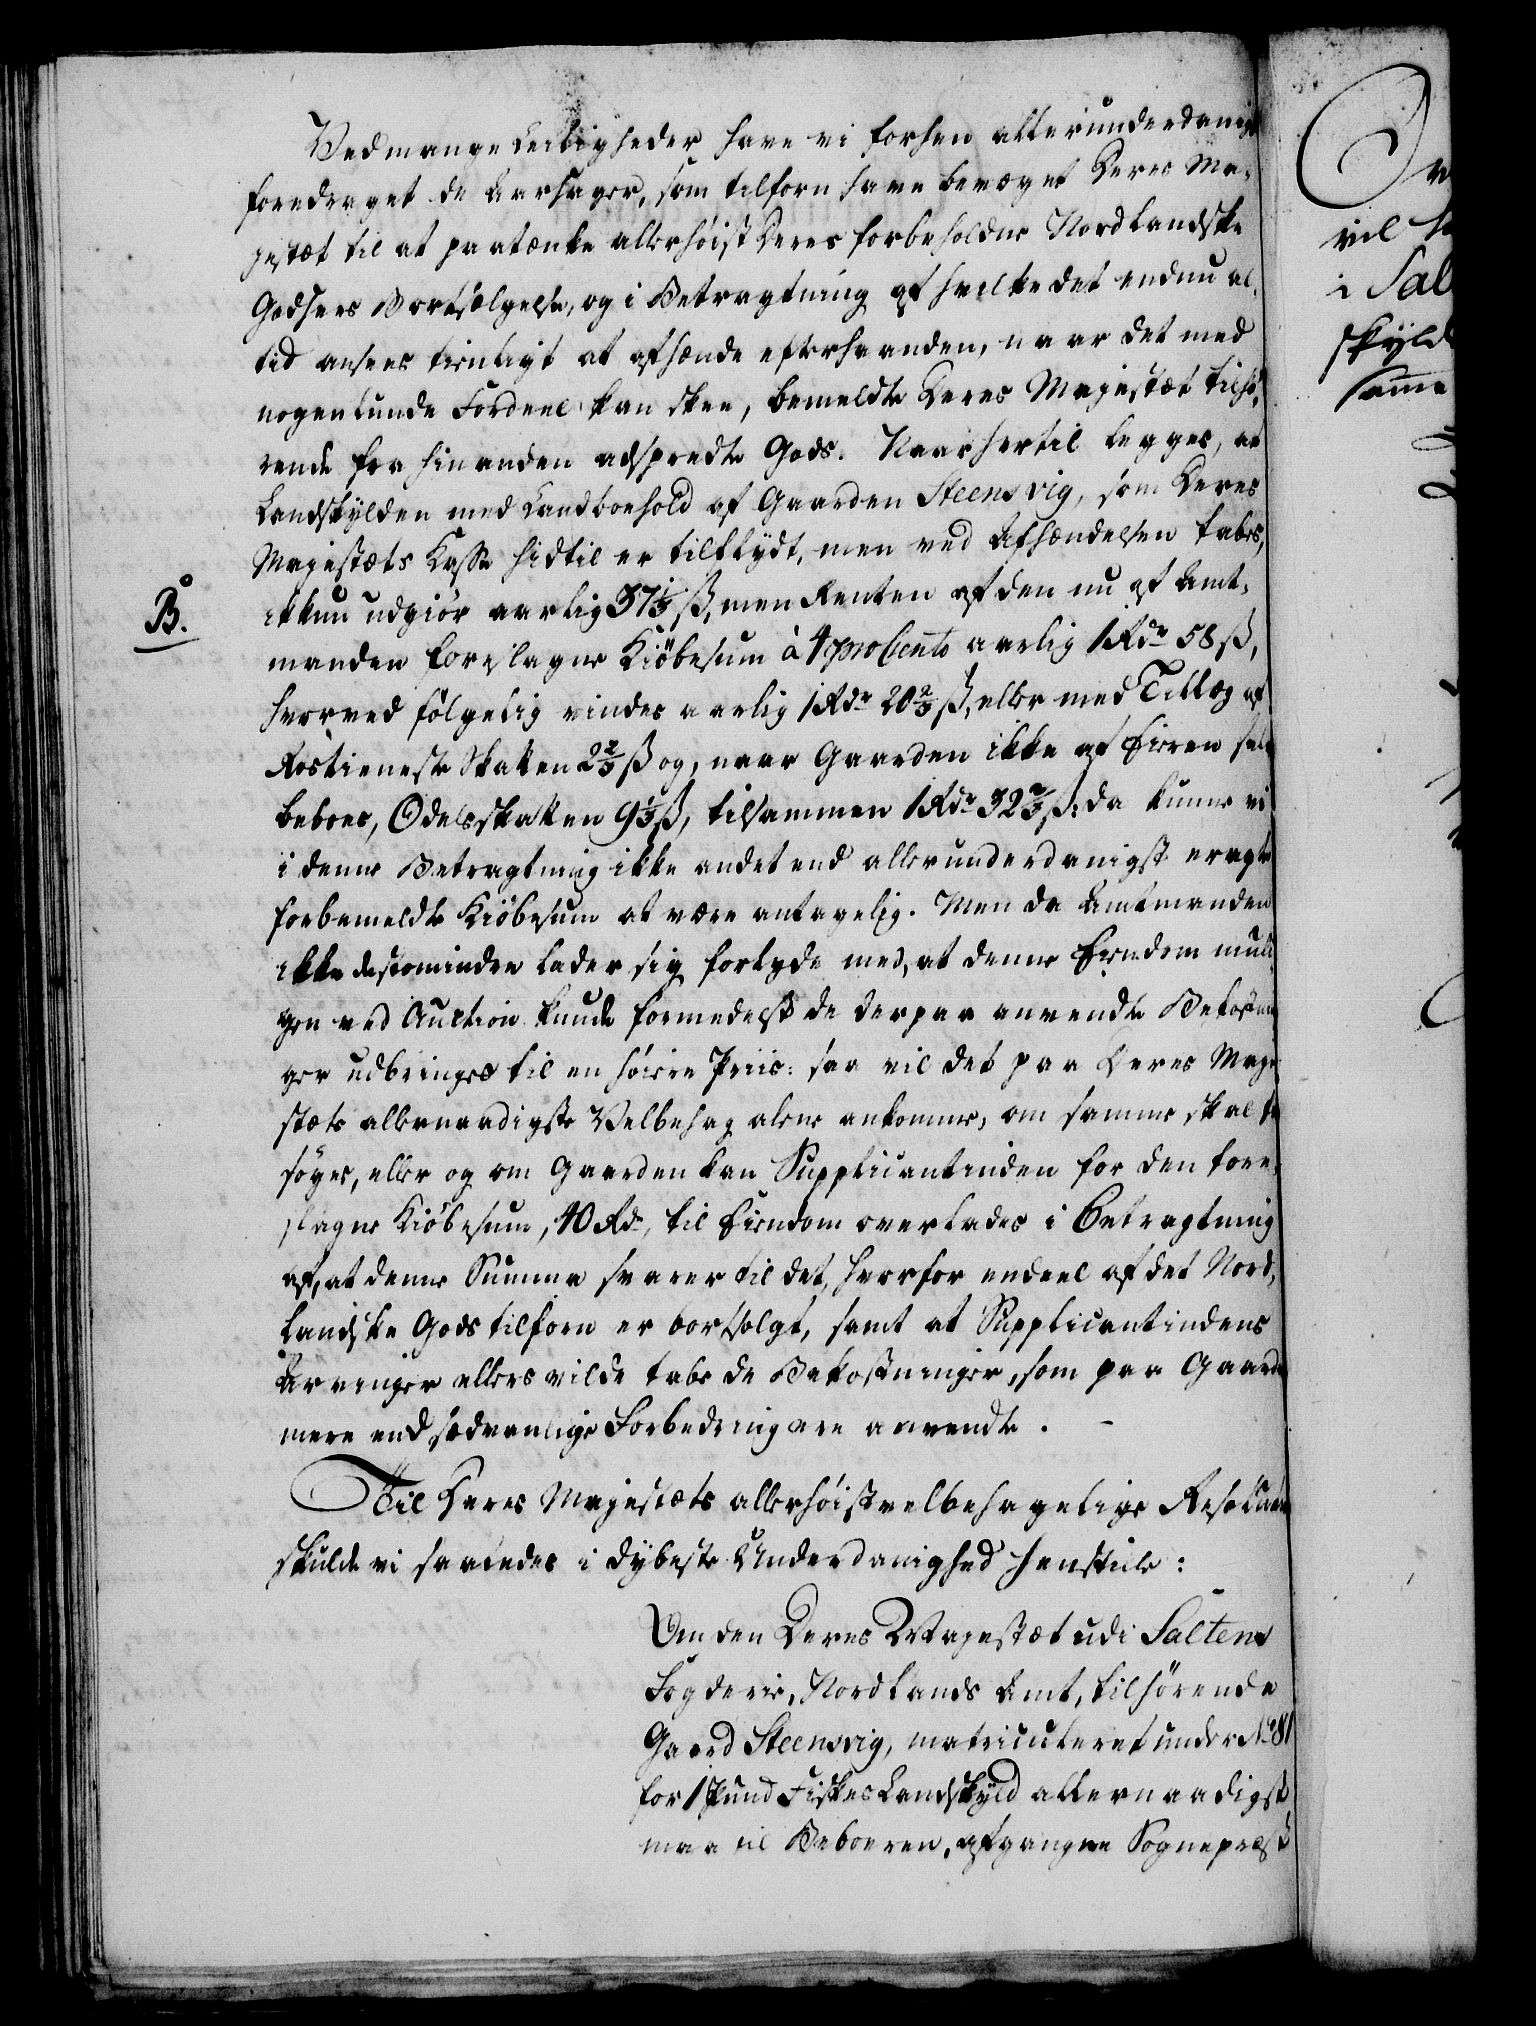 Ved mange Leiligheder have vi forhen allerunderdanigst
foredraget de Aarsager, som tilforn have bevæget Deres Ma-
jestæt til at paatænke allerhøist Deres forbeholdne Nordlandske
Godses Bortsælgelse, og i Betragtning af hvilke det endnu al-
tid ansees tienligt at afhænde efterhaanden, naar det med
nogenlunde Fordeel kan skee, bemeldte Deres Majestæt tilhø-
rende fra hinanden adspredte Gods. Naar hertil legges, at
Landskylden med Landboehold af Gaarden Steensvig, som Deres
Majestæts Kasse hidtil er tilflydt, men ved Afhændelsen tabes,
ikkun udgiør aarlig 37 1/3 ß, men Renten af den nu af Amt-
B.
manden foreslagne Kiøbesum à 4 pro Cento aarlig 1 Rdr 58 ß,
hvorved følgelig vindes aarlig 1 Rdr 20 2/3 ß, eller med Tillæg af
Rostieneste Skatten 2 2/3 ß og, naar Gaarden ikke af Eieren selv
beboes, Odelsskatten 9 1/3 ß, tilsammen 1 Rdr 32 2/3 ß: da kunne vi
i denne Betragtning ikke andet end allerunderdanigst eragte
forbemeldte Kiøbesum at være antagelig. Men da Amtmanden
ikke destomindre lader sig forlyde med, at denne Eiendom muli-
gen ved Auction kunde formedelst de derpaa anvendte Bekostnin-
ger udbringes til en høiere Priis: saa vil det paa Deres Maje-
stæts allernaadigste Velbehag alene ankomme, om samme skal for-
søges, eller og om Gaarden kan Supplicantinden for den fore-
slagne Kiøbesum, 40 Rdr, til Eiendom overlades i Betragtning
af, at denne Summa svarer til det, hvorfor endeel af det Nord-
landske Gods tilforn er bortsolgt, samt at Supplicantindens
Arvinger ellers vilde tabe de Bekostninger, som paa Gaarden
mere end sædvanlige Forbedring ere anvendte. -
Til Deres Majestæts allerhøistvelbehagelige Resolution
skulde vi saaledes i dybeste Underdanighed henstille:
Om den Deres Majestæt udi Saltens
Fogderie, Nordlands Amt, tilhørende
Gaard Steensvig, matriculeret under No 281
for 1 Pund Fiskes Landskyld allernaadigst
maa til Beboeren, afgangne Sognepræst
vil
i Sal
skyld
samme